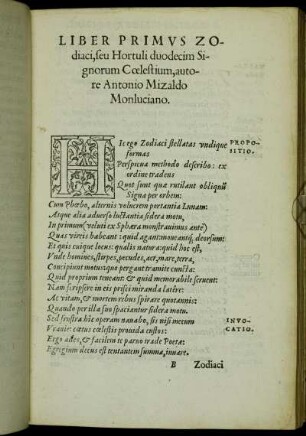 LIBER PRIMVS ZO-
diaci, seu Hortuli duodecim Si-
gnorum Cœlestium, auto-
re Antonio Mizaldo
Monluciano.
HIc ego Zodiaci stellatas vndique formas
PROPO-
SITIO.
Perspicua methodo describo: ex ordine tradens
Quot sunt quæ rutilant obliquũ Signa per orbem:
Cum Phœbo, alternis volucrem portantia Lunam:
Atque alia aduerso luctantia sidera motu,
In primum (veluti ex Sphæra monstrauimus antè)
Quas vires habeant: quid agant: moneantq́; deorsum:
Et quis cuique locus: qualis natura: quid hoc est,
Vnde homines, stirpes, pecudes, aer, mare, terra,
Concipiunt motus: quo pergant tramite cuncta:
Quid proprium teneant & quid memorabile seruent:
Nam scripsere in eis prisci miranda latere:
Ac vitam, & mortem rebus spirare quotannis:
Quando per illa suo spaciantur sidera motu.
Sed frustra hîc operam nauabo, sis nisi mecum
INVO-
CATIO.
Vranie: cœtus cœlestis prouida custos:
Ergo ades, & facilem te parno trade Poetæ:
Egregium decus est tentantem summa, iuuare.
B Zodiaci